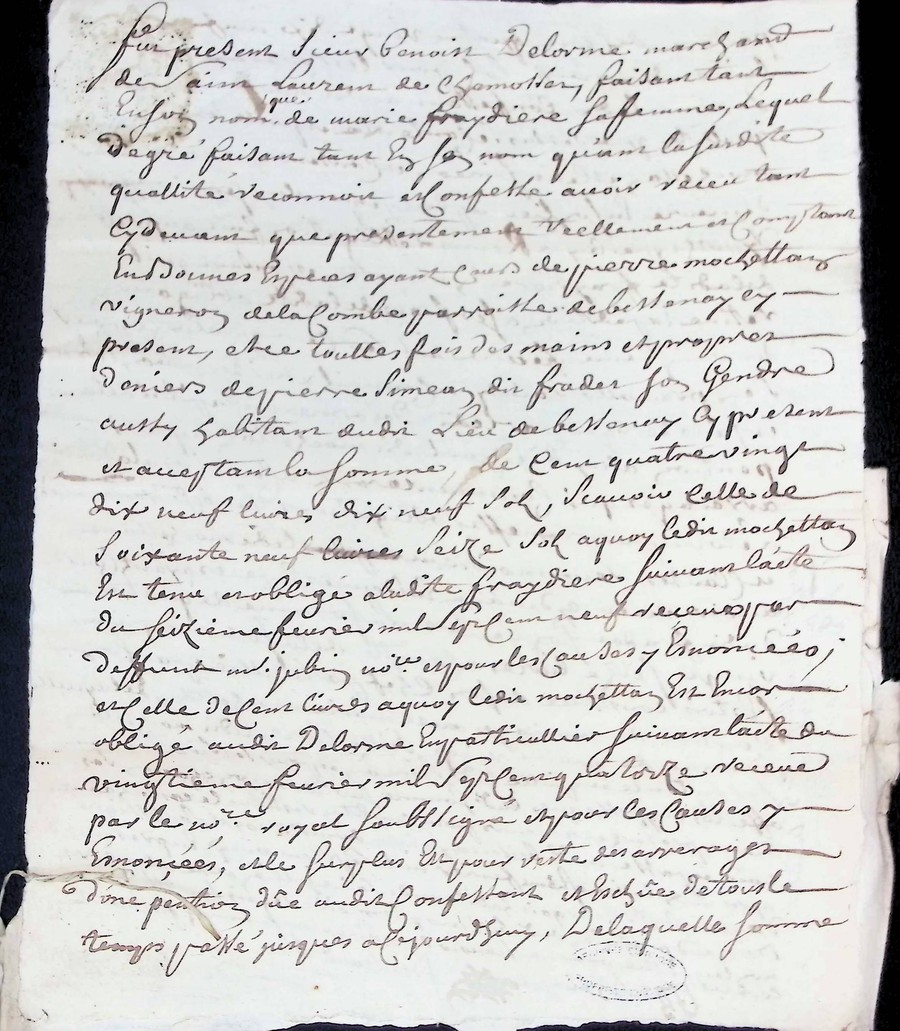 fut present Sieur benoist Delorme marchand
de Saint Laurent de Chamosset, faisant tant
En son nom que de marie fraydiere sa femme, Lequel
de gré faisant tant En son nom qu'ant la susdite
quallité reconnoit et Confesse avoir receu tant
Cydevant que presentement reellement et Comptant
En Bonnes Especes ayant Cours de pierre mochettan
vigneron de la Combe parroisse de bessenay cy
present, et ce touttes fois des mains et propres
deniers de pierre Simean dit frader son Gendre
aussy habitant dudit Lieu de bessenay Cy present
et acceptant la somme, de Cent quatre vingt
dix neuf livres dix neuf sols, scavoir Celle de
soixante neuf livres seize sols a quoy ledit mochettan
Est tenu et obligé a ladite fraydiere suivant l'acte
du seizieme fevrier mil sept Cent neuf receue par
deffunt mr. jubin nore et pour les Causes y Enoncéés;
et Celle de Cent livres a quoy ledit mochettan Est Encor
obligé audit Delorme En particullier suivant l'acte du
vingtieme fevrier mil sept Cent quatorze receue
par le nore royal soubssigné et pour les Causes y
Enoncéés, et le surplus Est pour reste des arrerages
d'une pention düe audit Confessant et Eschüe de tous le
temps passé jusques a Cejourd'huy, De laquelle somme